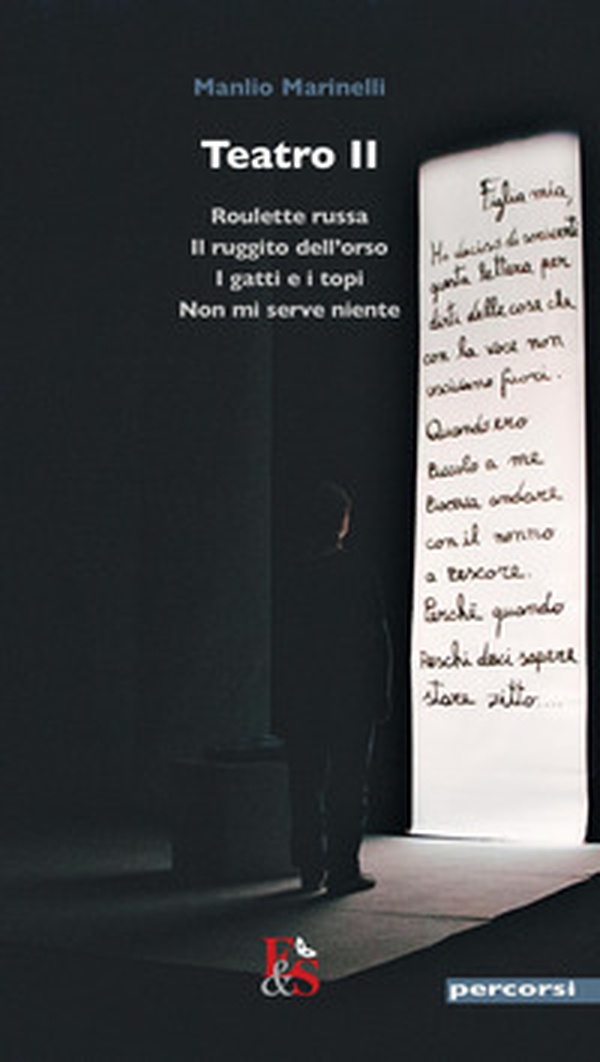 Manlio Marinelli
Teatro II
Roulette russa
Il ruggito dell'orso
I gatti e i topi
Non mi serve niente
Figlia mia,
Ho deciso di
questa lettera per
dirti delle cose che
con la voce non
uscivano fuori.
Quando ero
piccolo a me
piaceva andare
con il nonno
a pescare.
Perché quando
peschi devi sapere
stare zitto....
E&S
percorsi